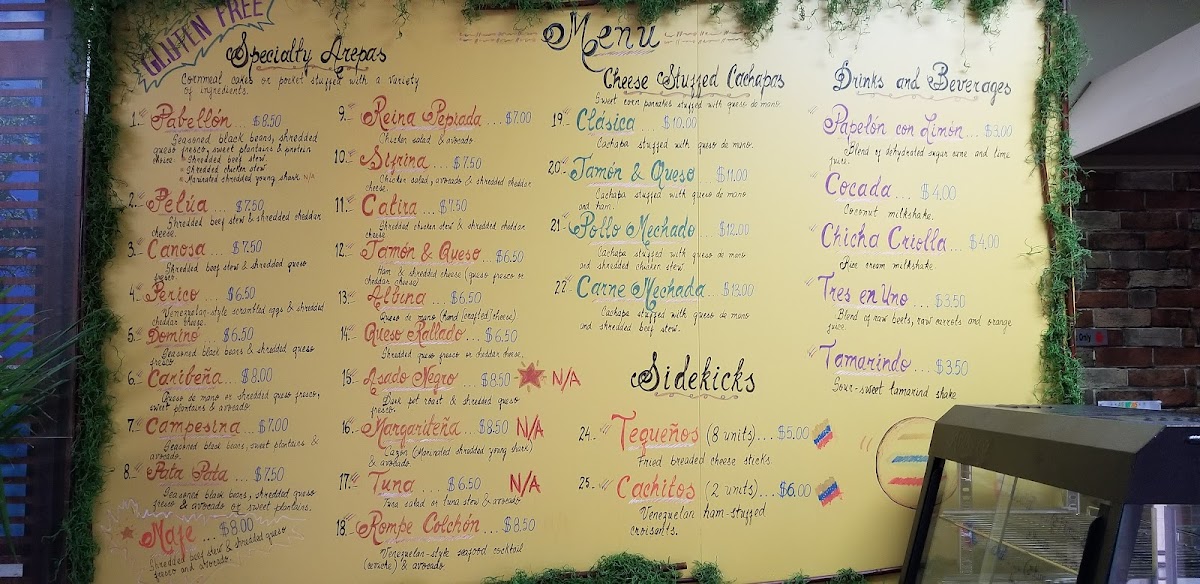 GLUTEN FREE
Menu
Specialty Arepas
Cornmeal cakes or pocket stuffed with a variety
of ingredients.
1. Pabellón ... $8.50
Seasoned black beans, shredded
queso fresco, sweet plantains & protein
choice. * Shredded beef stew.
* Shredded chicken stew
* Marinated shredded young shark. N/A
2. Pelúa ... $7.50
Shredded beef stew & shredded cheddar
cheese.
3. Canosa ... $7.50
Shredded beef stew & shredded queso
fresco.
4. Perico ... $6.50
Venezuelan-style scrambled eggs & shredded
cheddar cheese.
5. Domino $6.50
Seasoned black beans & shredded queso
fresco.
6. Caribeña ... $8.00
Queso de mano or shredded queso fresco,
sweet plantains & avocado.
7. Campesina ... $7.00
Seasoned black beans, sweet plantains &
avocado.
8. Pata Pata ... $7.50
Seasoned black beans, shredded queso
fresco & avocado or sweet plantains.
Maje ... $8.00
Shredded beef stew & shredded queso
fresco and avocado.
9. Reina Pepiada ... $7.00
Chicken salad & avocado
10. Sifrina ... $7.50
Chicken salad, avocado & shredded cheddar
cheese.
11. Catira ... $7.50
Shredded chicken stew & shredded cheddar
cheese.
12. Jamón & Queso ... $6.50
Ham & shredded cheese (queso fresco or
cheddar cheese)
13. Albina ... $6.50
Queso de mano (hand crafted cheese)
14. Queso Rallado ... $6.50
Shredded queso fresco or cheddar cheese.
15. Asado Negro ... $8.50 N/A
Dark pot roast & shredded queso
fresco.
16. Margariteña ... $8.50 N/A
Cazón (Marinated shredded young shark)
& avocado.
17. Tuna ... $6.50 N/A
Tuna salad or tuna stew & avocado
18. Rompe Colchón ... $8.50
Venezuelan-style seafood cocktail
(ceviche) & avocado
Cheese Stuffed Cachapas
Sweet corn pancakes stuffed with queso de mano.
19. Clásica ... $10.00
Cachapa stuffed with queso de mano.
20. Jamón & Queso ... $11.00
Cachapa stuffed with queso de mano
and ham.
21. Pollo Mechado ... $12.00
Cachapa stuffed with queso de mano
and shredded chicken stew.
22. Carne Mechada ... $13.00
Cachapa stuffed with queso de mano
and shredded beef stew.
Sidekicks
24. Tequeños (8 units) ... $5.00
Fried breaded cheese sticks.
25. Cachitos (2 units) ... $6.00
Venezuelan ham-stuffed
croissants.
Drinks and Beverages
Papelón con Limón ... $3.00
Blend of dehydrated sugar cane and lime
juice.
Cocada ... $4.00
Coconut milkshake.
Chicha Criolla ... $4.00
Rice cream milkshake
Tres en Uno ... $3.50
Blend of raw beets, raw carrots and orange
juice.
Tamarindo ... $3.50
Sour-sweet tamarind shake
Only